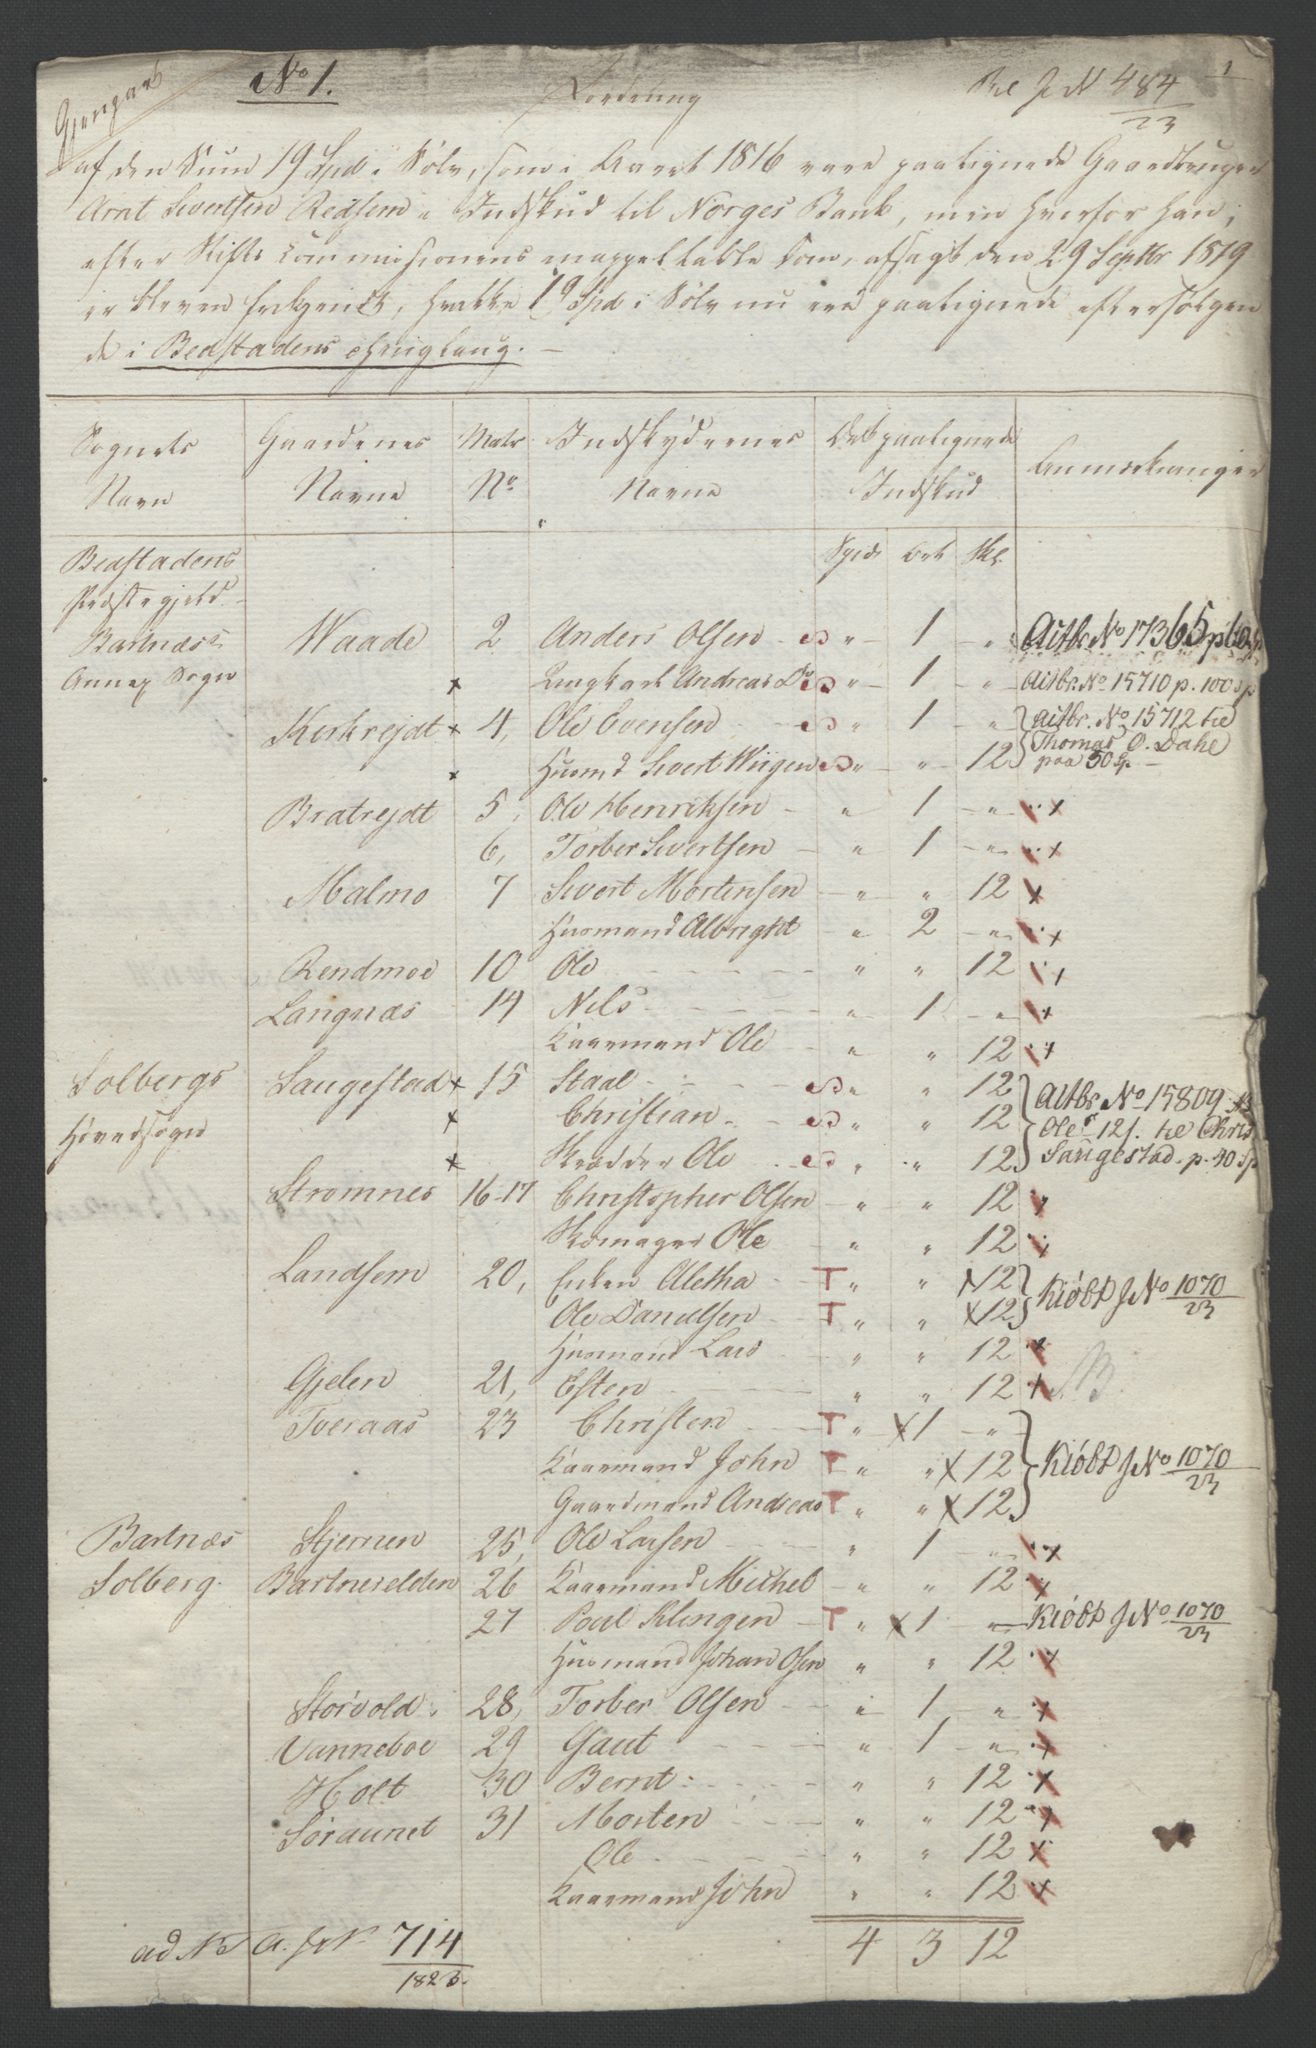 Gjenpart
No 1.
Fordeling
Bil J N 484/23
1
af den Sum 19 Spd i Sølv, som i Aaret 1816 vare paalignede Gaardbruger
Arnt Sivertsen Redsem i Indskud til Norges Bank, men hvorfor han,
efter Stifts Commissionens inappellable Dom, afsagt den 29 Septbr 1819
er bleven frikjendt, hvilke 19 Spd i Sølv nu ere paalignede efterfølgen
de i Bedstadens Thinglaug.
Sognets Navn | Gaardenes Navne | Matr No | Indskydernes Navne | Det paalignede Indskud | Anmærkninger
Spd | Ort | Skl.
Bedstadens
Præstegjeld
Bartnæs | Waade | 2 | Anders Olsen | " | 1 | " | Actbr. No 17365 p
Annex Sogn | x | Andreas Do | " | 1 | " | Actbr. No 15710 p. 100 sp
Kirkrejdt x | 4, | Ole Evensen | " | 1 | " | Actbr. No 15712 til
x | Husmd Sivert Wiigen | " | " | 12 | Thomas O. Dahl paa 50 Sp
Bratrejdt | 5, | Ole Henriksen | " | 1 | " | x
6, | Torber Sivertsen | " | 1 | " | x
Malmo | 7 | Sivert Mortensen | " | " | 12 | x
Husmand Albright | " | 2 | " | x
Rendmoe | 10 | Ole | " | " | 12 | x
Langnæs | 14 | Nels | " | 1 | " | x
Kaarmand Ole | " | " | 12 | x
Solbergs | Saugestad x | 15 | Staal | " | " | 12 | Actbr No 15809
Hovedsogn | x | Christian | " | " | 12 | Ole 12 s. til Chris
x | Skrædder Ole | " | " | 12 | Saugestad p. 40 sp
Strømnes | 16-17 | Christopher Olsen | " | " | 12 | x
Skomager Ole | " | " | 12 | x
Landsem | 20, | Enken Aletha | T " | " | x 12 | Kiøbt J No 1070/23
Ole Danelsen | T " | " | x 12
Husmand Lars | " | " | 12 | x
Gjelen | 21, | Esten | " | " | 12 | x
Tveraas | 23 | Christen | T " | x 1 | "
Kaarmand John | T " | " | x 12 | Kiøbt J No 1070/23
Gaardmand Andreas | T " | " | x 12
Bartnæs | Stjernen | 25, | Ole Larsen | " | 1 | " | x
Solberg | Bartneselden | 26 | Kaarmand Michel | " | " | 12 | x
27 | Poul Klingen | T " | x 1 | " | Kiøbt J No 1070/23
Husmand Johan Olsen | " | " | 12 | x
Storvold | 28, | Torber Olsen | " | 1 | " | x
Vanneboe | 29 | Gaut | " | 1 | " | x
Holt | 30 | Bernt | " | " | 12 | x
Søraunet | 31 | Morten | " | " | 12 | x
Ole | " | " | 12 | x
Kaarmand John | " | " | 12 | x
4 | 3 | 12
ad N A. J N 714/1823.